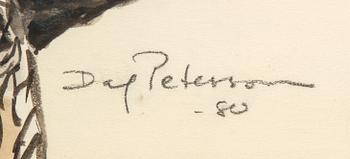 Dag Peterson
-80